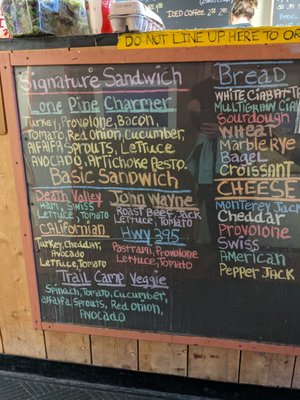 ICED COFFEE
DO NOT LINE UP HERE TO OR
Signature Sandwich
Lone Pine Charmer
Turkey, Provolone, Bacon,
Tomato, Red Onion, Cucumber,
Alfalfa Sprouts, Lettuce
Avocado, Artichoke Pesto.
Basic Sandwich
Death Valley
Ham, Swiss
Lettuce, Tomato
Californian
Turkey, Cheddar,
Avocado
Lettuce, Tomato
John Wayne
Roast Beef, Jack
Lettuce, Tomato
Hwy 395
Pastrami, Provolone
Lettuce, Tomato
Trail Camp Veggie
Spinach, Tomato, Cucumber,
Alfalfa Sprouts, Red Onion,
Avocado
Bread
White Ciabatta
Multigrain Cia
Sourdough
Wheat
Marble Rye
Bagel
Croissant
CHEESE
Monterey Jack
Cheddar
Provolone
Swiss
American
Pepper Jack